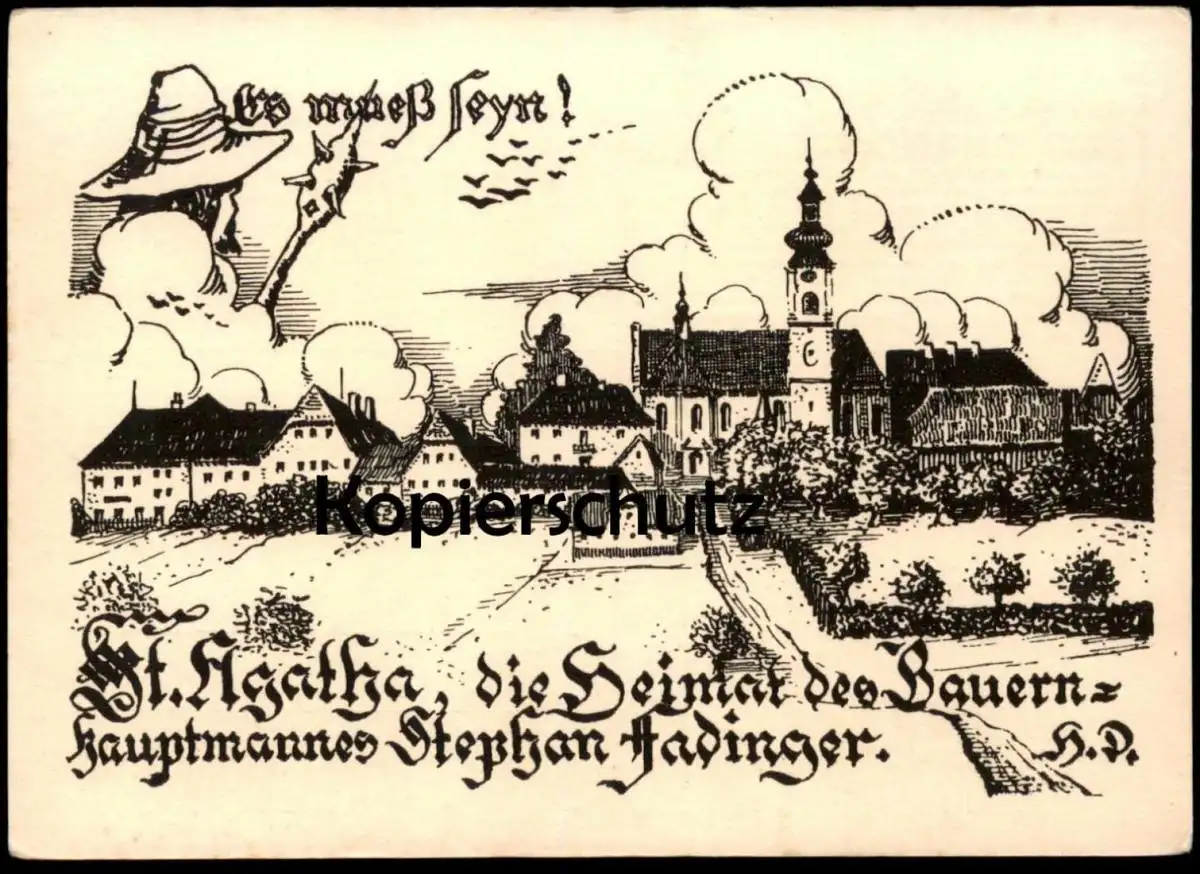 Es mueß seyn!
Kopierschutz
St. Agatha, die Heimat des Bauern=
hauptmannes Stephan Fadinger. H. D.